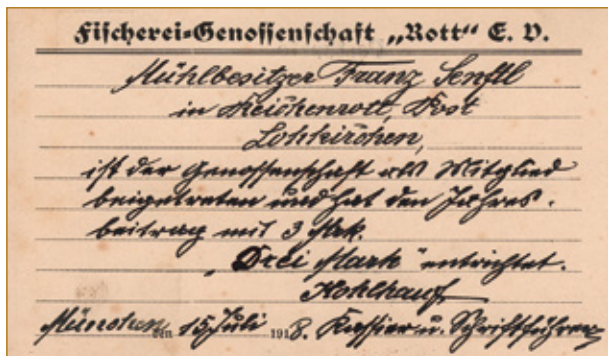 Fischerei-Genossenschaft „Rott“ E. V.
Mühlbesitzer Franz Senftl
in Reichenrott, Post
Lohkirchen,
ist der Genossenschaft als Mitglied
beigetreten und hat den Jahres-
beitrag mit 3 Mrk.
„Drei Mark“ entrichtet.
Kohlhauf
München den 15 Juli 1918. Kassier u. Schriftführer